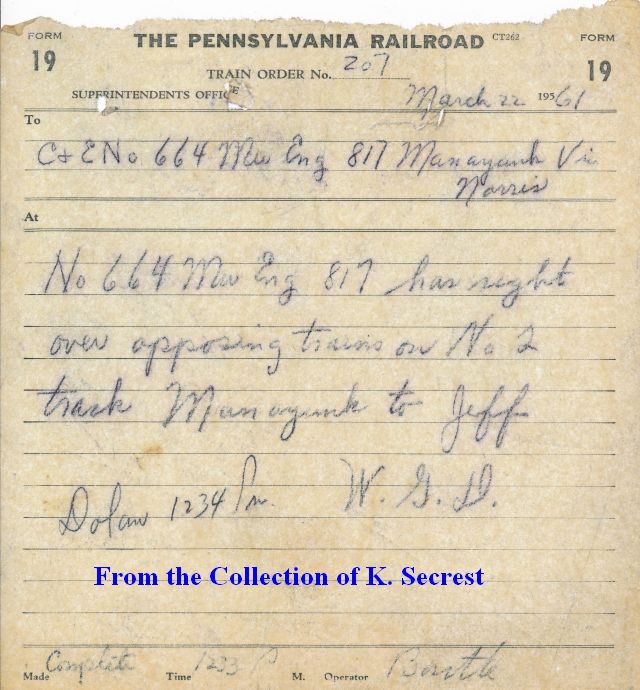 FORM 19 THE PENNSYLVANIA RAILROAD CT262 FORM 19
TRAIN ORDER No. 207
SUPERINTENDENTS OFFICE March 22 195 61
To
C+E No 664 Mu Eng 817 Manayunk Via
Norris
At
No 664 Mu Eng 817 has right
over opposing trains on No 2
track Manayunk to Jeff
Dolan 1234 Pm. W. G. D.
From the Collection of K. Secrest
Made Complete Time 1233 P M. Operator